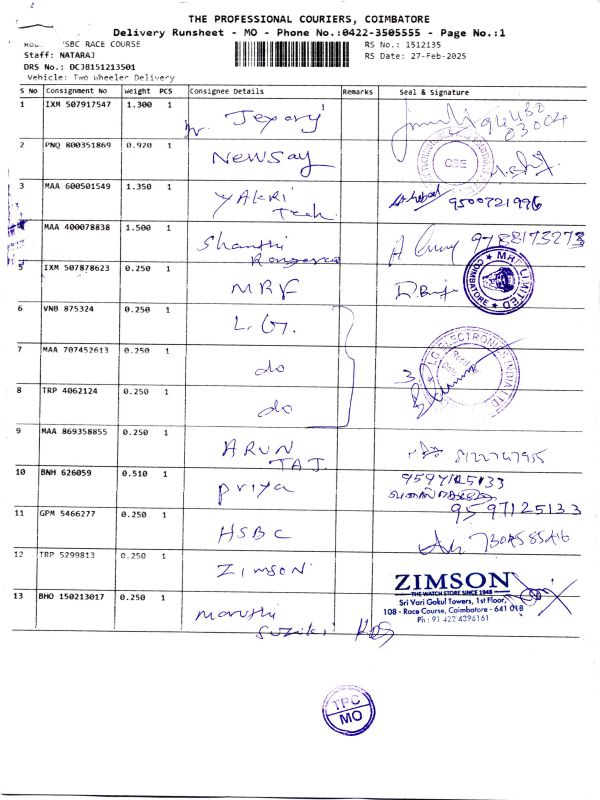 THE PROFESSIONAL COURIERS, COIMBATORE
Delivery Runsheet - MO - Phone No.:0422-3505555 - Page No.:1
HSBC RACE COURSE
RS No.: 1512135
Staff: NATARAJ
RS Date: 27-Feb-2025
DRS No.: DCJB151213501
Vehicle: Two Wheeler Delivery
S No Consignment No Weight PCS Consignee Details Remarks Seal & Signature
1 IXM 507917547 1.300 1
03004
2 PNQ 800351869 0.920 1 Newsay
CBE
3 MAA 600501549 1.350 1 Yakri Tech
9500721996
MAA 400078838 1.500 1 Shanthi
9788173273
5 IXM 507878623 0.250 1 MRF
MRF LIMITED
COIMBATORE
6 VNB 875324 0.250 1 L.G.
7 MAA 707452613 0.250 1 do
LG ELECTRONICS INDIA LTD
8 TRP 4062124 0.250 1 do
3
9 MAA 869358855 0.250 1 ARUN TAJ
10 BNH 626059 0.510 1 Priya
9597125133
9597125133
11 GPM 5466277 0.250 1 HSBC
12 TRP 5299813 0.250 1 Zimson
ZIMSON
THE WATCH STORE SINCE 1948
Sri Vari Gokul Towers, 1st Floor,
108 - Race Course, Coimbatore - 641 018
Ph : 91 422 4396161
13 BHO 150213017 0.250 1 Maruthi
Suziki
TPC
MO